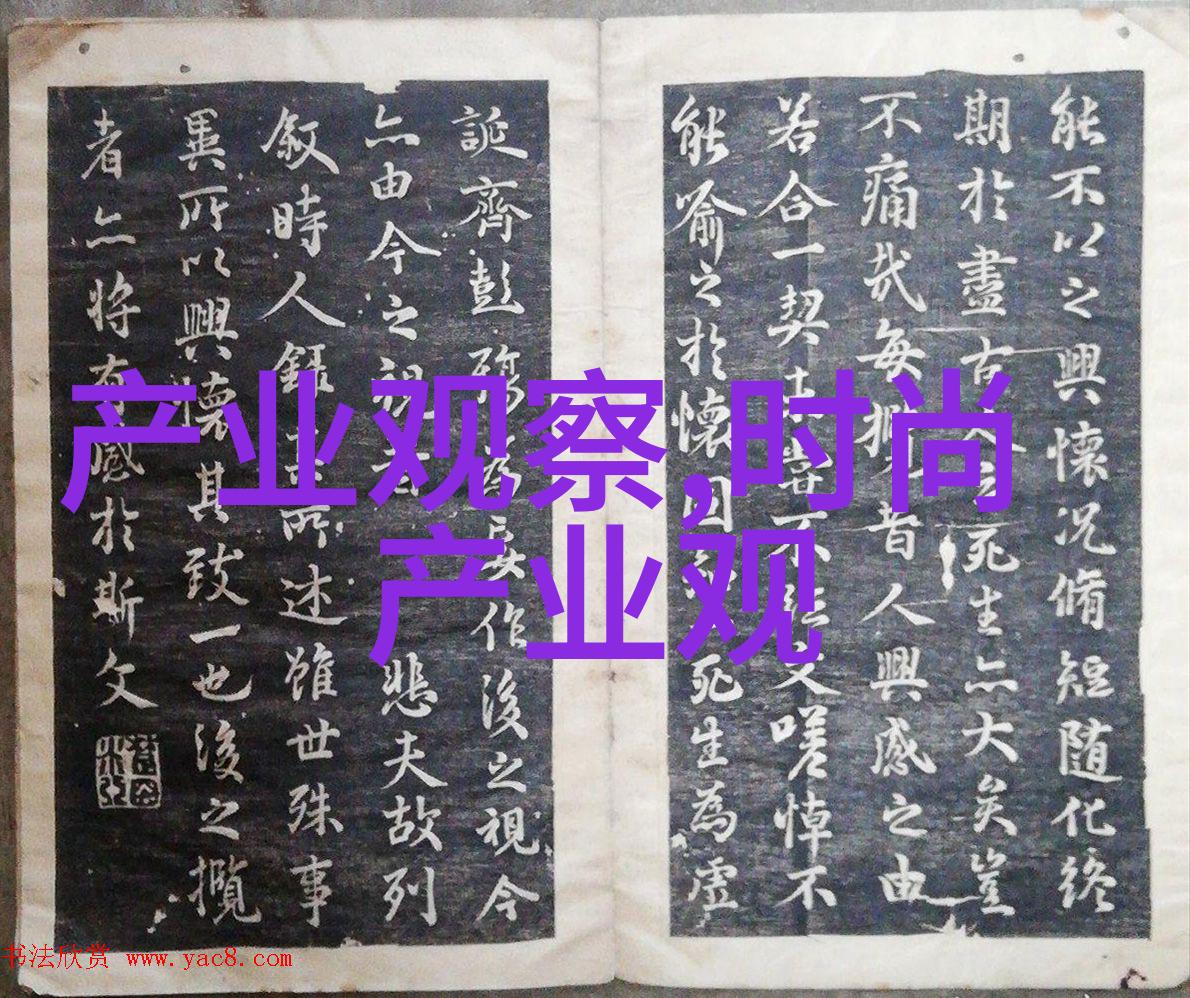 能不以之興懷況脩短随化終
期於盡古人云死生亦大矣豈
不痛哉每攬昔人興感之由
若合一契未嘗不臨文嗟悼不
能喻之於懷固死生為虛
誕齊彭殤為妄作後之視今
亦由今之視昔悲夫故列
敘時人錄其所述雖世殊事
異所以興懷其致一也後之攬
者亦將有感於斯文
产业观察,时尚
产业观
书法欣赏 www.yac8.com